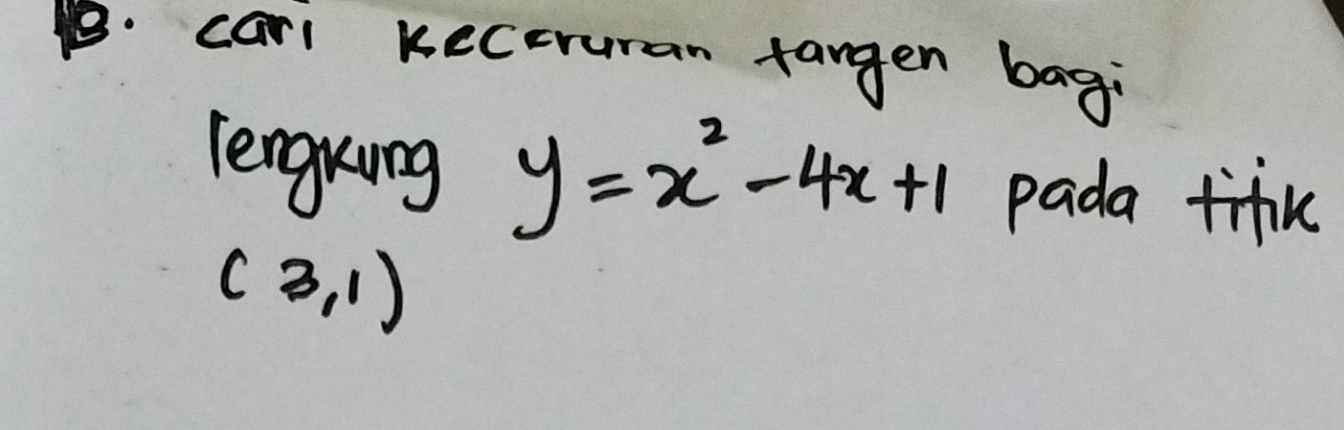 B. cari kecerunan tangen bagi
lengkung y = x² - 4x + 1 pada titik
(3,1)